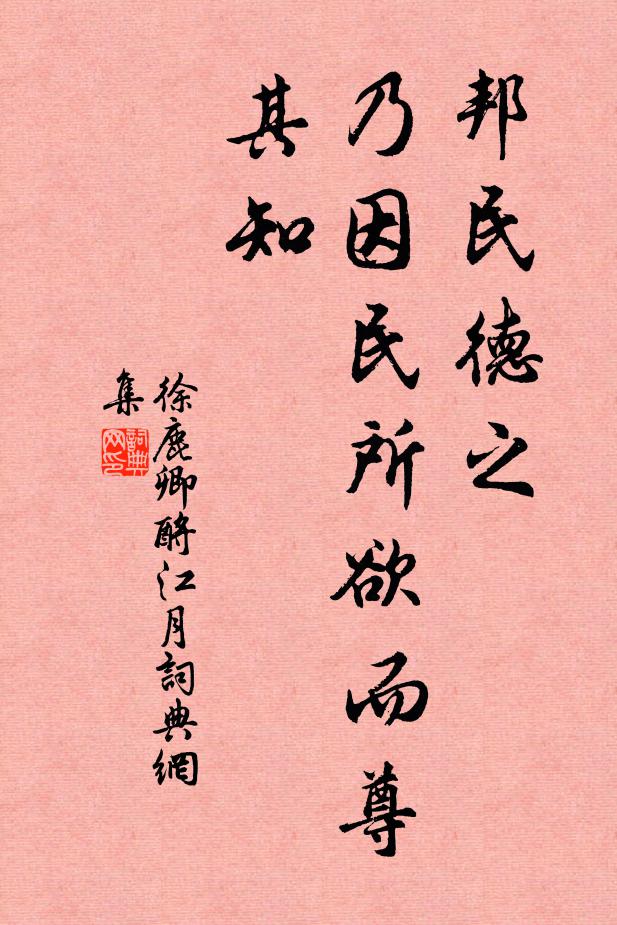 邦民德之
乃因民所欲而尊
其知
徐鹿卿酹江月詞典網
集
詞典
网印